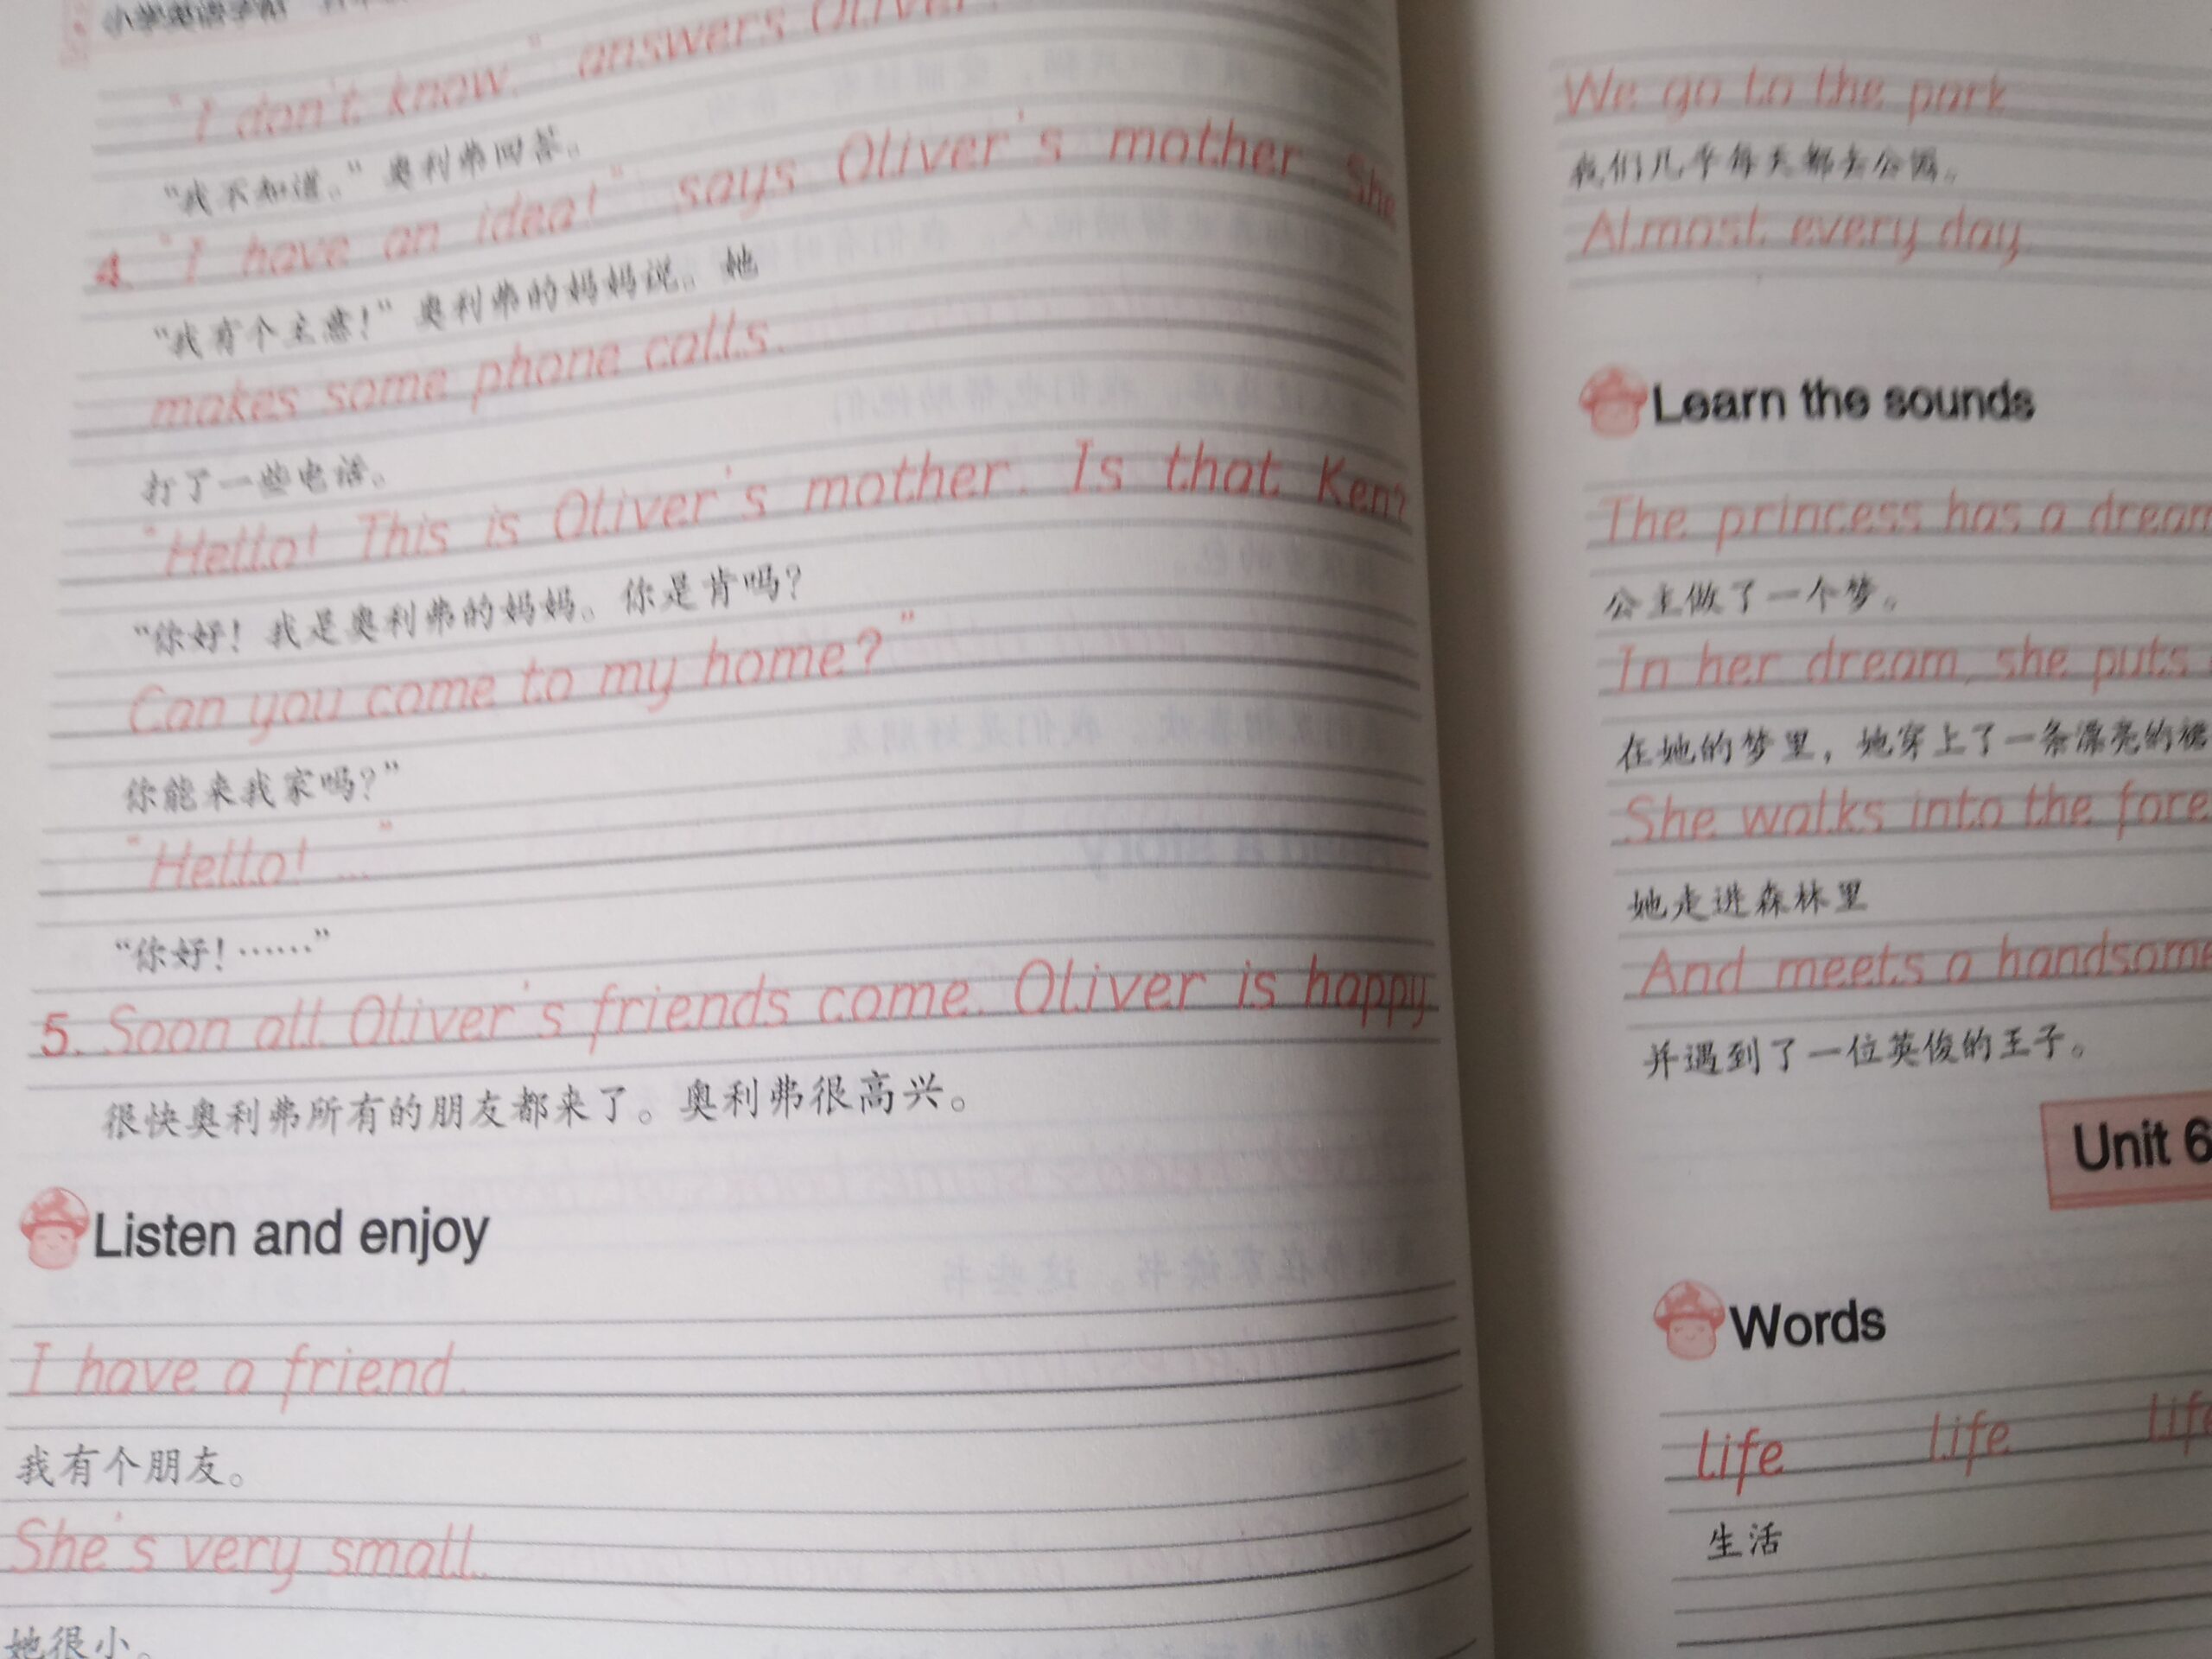 小学英语字帖
"I don't know." answers Oliver.
"我不知道。" 奥利弗回答。
4. "I have an idea!" says Oliver's mother. She
"我有个主意!" 奥利弗的妈妈说。她
makes some phone calls.
打了一些电话。
"Hello! This is Oliver's mother. Is that Ken?
"你好! 我是奥利弗的妈妈。你是肯吗?
Can you come to my home?"
你能来我家吗?"
"Hello! ..."
"你好!……"
5. Soon all Oliver's friends come. Oliver is happy.
很快奥利弗所有的朋友都来了。奥利弗很高兴。
Listen and enjoy
I have a friend.
我有个朋友。
She's very small.
她很小。
We go to the park
我们几乎每天都去公园。
Almost every day.
Learn the sounds
The princess has a dream
公主做了一个梦。
In her dream, she puts
在她的梦里，她穿上了一条漂亮的裙
She walks into the fore
她走进森林里
And meets a handsome
并遇到了一位英俊的王子。
Unit 6
Words
life life life
生活